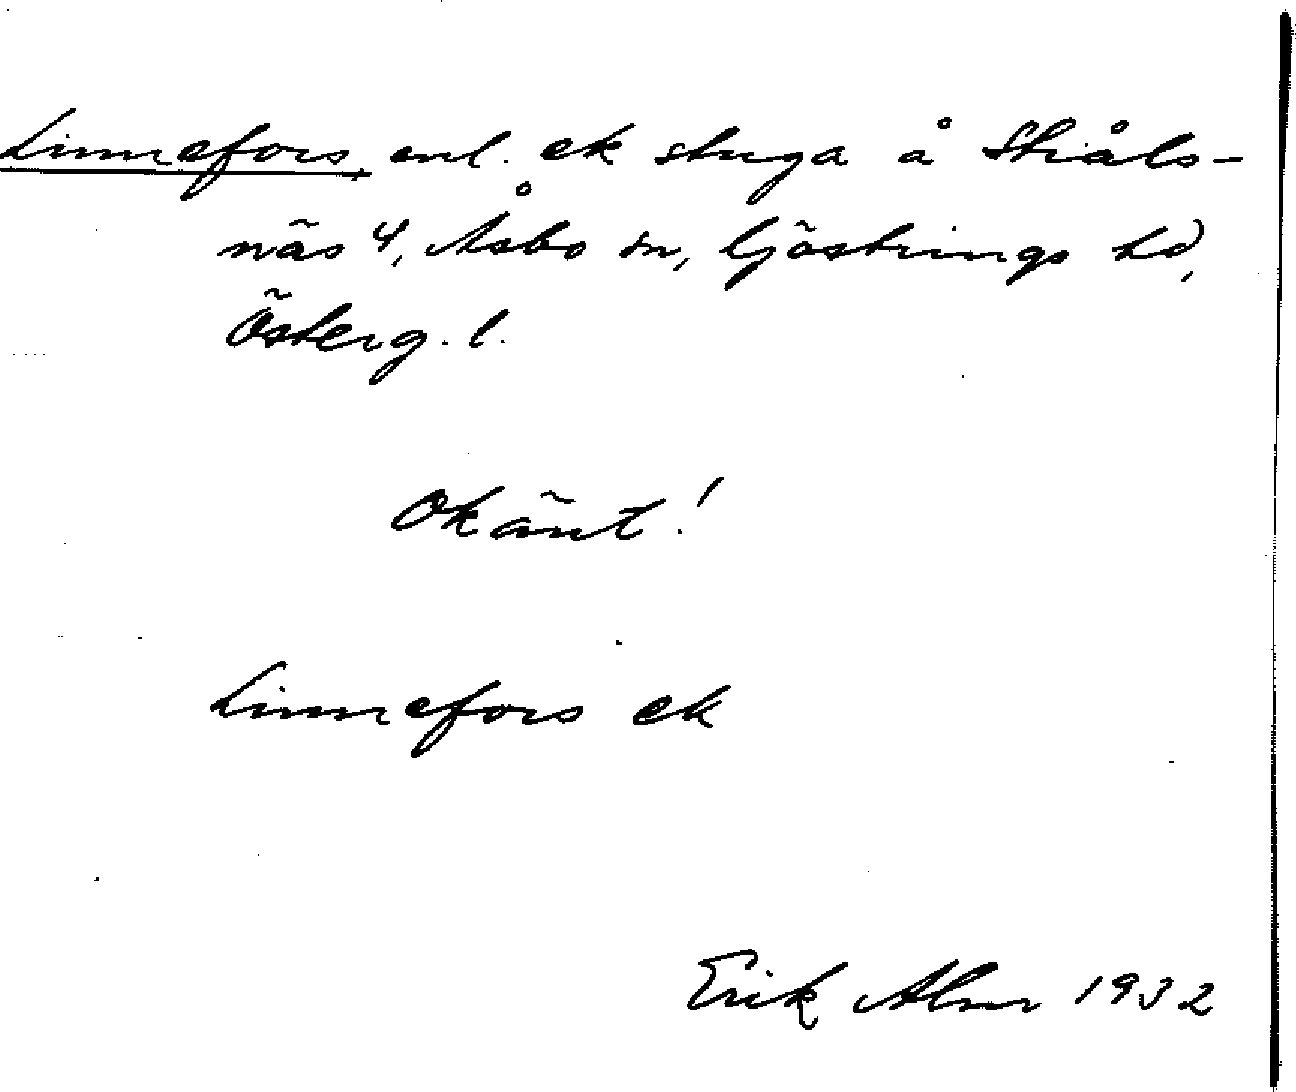 Linnefors, enl. ek stuga å Stråls-
näs 4, Åsbo sn, Göstrings hd,
Österg. l.
Okänt!
Linnefors ek
Erik Alm 1932